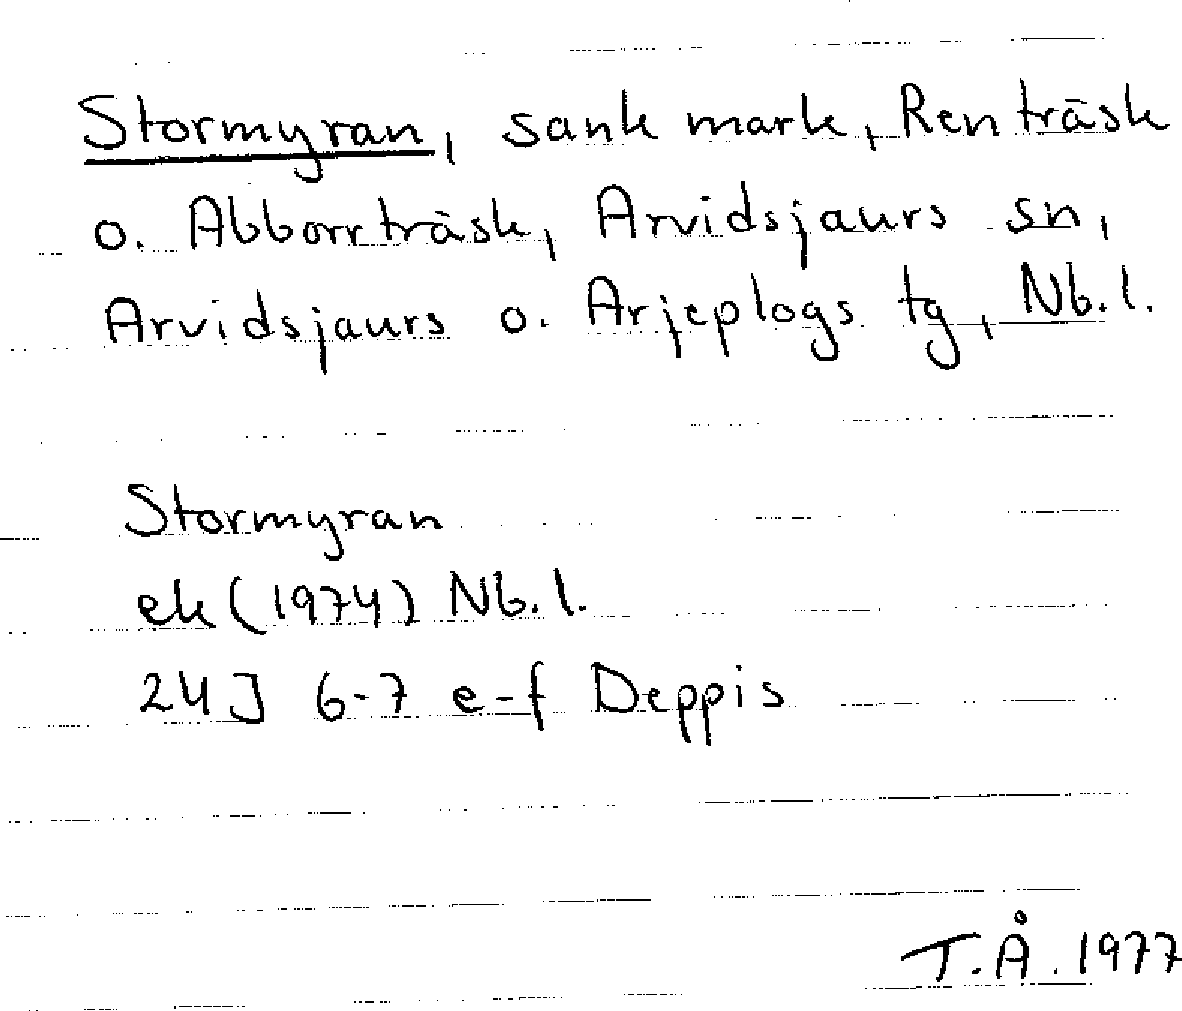 Stormyran, sank mark, Renträsk
o. Abborrträsk, Arvidsjaurs sn,
Arvidsjaurs o. Arjeplogs tg, Nb.l.
Stormyran
ek (1974) Nb.l.
24J 6-7 e-f Deppis
T.Å. 1977